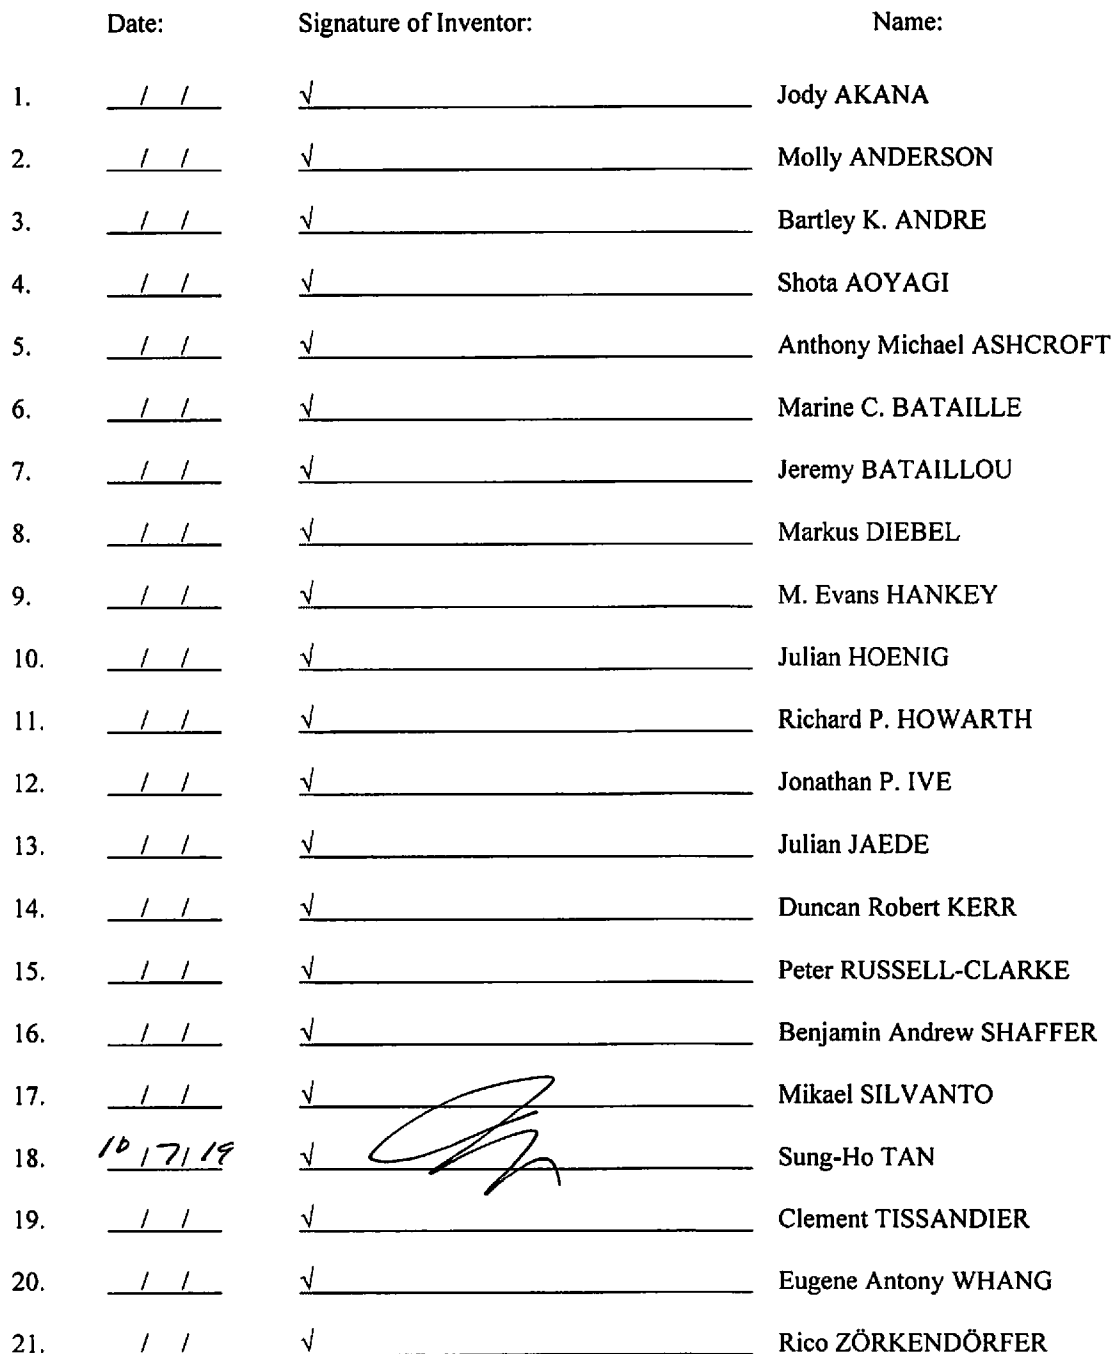 Date: Signature of Inventor: Name:
1. / / √ Jody AKANA
2. / / √ Molly ANDERSON
3. / / √ Bartley K. ANDRE
4. / / √ Shota AOYAGI
5. / / √ Anthony Michael ASHCROFT
6. / / √ Marine C. BATAILLE
7. / / √ Jeremy BATAILLOU
8. / / √ Markus DIEBEL
9. / / √ M. Evans HANKEY
10. / / √ Julian HOENIG
11. / / √ Richard P. HOWARTH
12. / / √ Jonathan P. IVE
13. / / √ Julian JAEDE
14. / / √ Duncan Robert KERR
15. / / √ Peter RUSSELL-CLARKE
16. / / √ Benjamin Andrew SHAFFER
17. / / √ Mikael SILVANTO
18. 10 / 7 / 19 √ Sung-Ho TAN
19. / / √ Clement TISSANDIER
20. / / √ Eugene Antony WHANG
21. / / √ Rico ZÖRKENDÖRFER